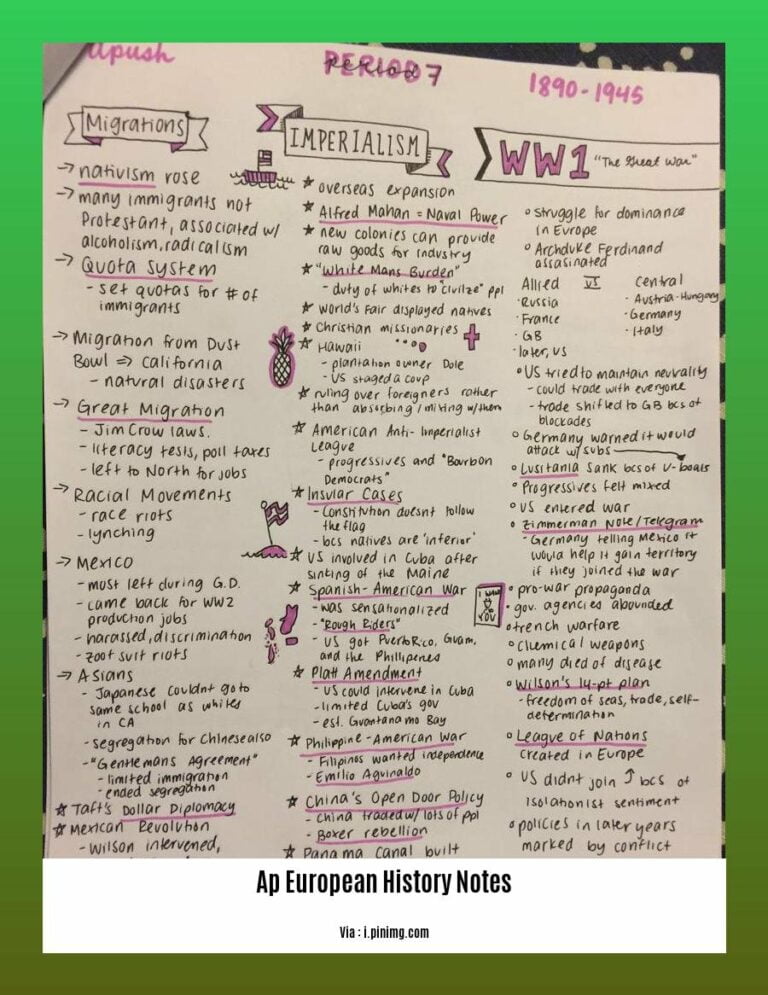 apush
PERIOD 7
1890-1945
Migrations
→ nativism rose
→ many immigrants not
Protestant, associated w/
alcoholism, radicalism
→ Quota system
- set quotas for # of
immigrants
→ Migration from Dust
Bowl ⇒ California
- natural disasters
→ Great Migration
- Jim Crow laws.
- literacy tests, poll taxes
- left to North for jobs
→ Racial Movements
- race riots
- lynching
→ Mexico
- most left during G.D.
- came back for WW2
production jobs
- harassed, discrimination
- zoot suit riots
→ Asians
- Japanese couldnt go to
same school as whites
in CA
- segregation for Chinese also
- "Gentlemans Agreement"
- limited immigration
- ended segregation
★ Taft's Dollar Diplomacy
★ Mexican Revolution
- Wilson intervened,
IMPERIALISM
★ overseas expansion
★ Alfred Mahan = Naval Power
★ new colonies can provide
raw goods for industry
★ "White Mans Burden"
- duty of whites to "civilze" ppl
★ World's Fair displayed natives
★ Christian missionaries
★ Hawaii
- plantation owner Dole
- US staged a coup
★ ruling over foreigners rather
than absorbing/mixing w/them
★ American Anti-Imperialist
League
- progressives and "Bourbon
Democrats"
★ Insular Cases
- Constitution doesnt follow
the flag
- bcs natives are 'inferior'
★ US involved in Cuba after
sinking of the Maine
★ Spanish-American War
- was sensationalized
- "Rough Riders"
- US got Puerto Rico, Guam,
and the Phillipenes
★ Platt Amendment
- US could intervene in Cuba
- limited Cuba's gov
- est. Guantanamo Bay
★ Philippine-American War
- Filipinos wanted independence
- Emilio Aguinaldo
★ China's Open Door Policy
- China traded w/ lots of ppl
- Boxer rebellion
★ Panama Canal built
WW1 "The Great War"
o struggle for dominance
in Europe
o Archduke Ferdinand
assasinated
Allied VS Central
· Russia
· France
· GB
· later, US
· Austria-Hungary
· Germany
· Italy
o US tried to maintain neutrality
- could trade with everyone
- trade shifted to GB bcs of
blockades
o Germany warned it would
attack w/ subs
o Lusitania sank bcs of U-boats
o Progressives felt mixed
o US entered war
o Zimmerman Note/Telegram
- Germany telling Mexico it
would help it gain territory
if they joined the war
I WANT
YOU
o pro-war propaganda
o gov. agencies abounded
o trench warfare
o chemical weapons
o many died of disease
o Wilson's 14-pt plan
- freedom of seas, trade, self-
determination
o League of Nations
created in Europe
o US didnt join ↑ bcs of
isolationist sentiment
o policies in later years
marked by conflict
Ap European History Notes
Via : i.pinimg.com